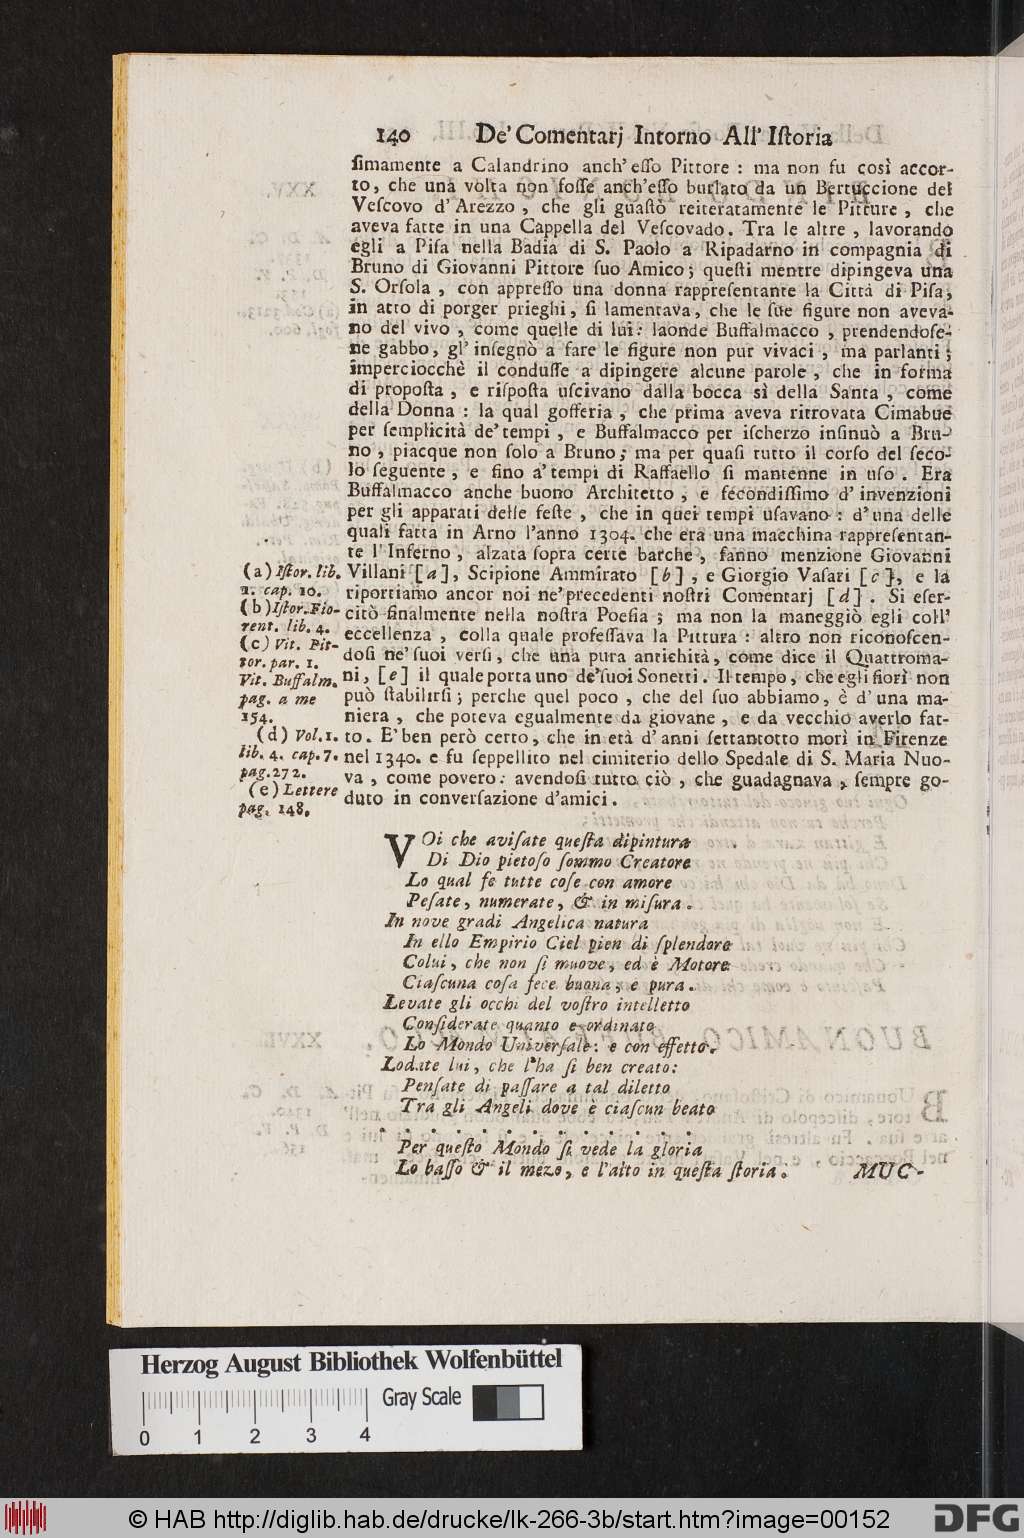 140 De' Comentarj Intorno All' Iſtoria
ſimamente a Calandrino anch' eſſo Pittore : ma non fu così accor-
to, che una volta non foſſe anch'eſſo burlato da un Bertuccione del
Veſcovo d'Arezzo , che gli guaſtò reiteratamente le Pitture , che
aveva fatte in una Cappella del Veſcovado. Tra le altre , lavorando
egli a Piſa nella Badia di S. Paolo a Ripadarno in compagnia di
Bruno di Giovanni Pittore ſuo Amico; queſti mentre dipingeva una
S. Orſola , con appreſſo una donna rappreſentante la Città di Piſa,
in atto di porger prieghi, ſi lamentava, che le ſue figure non aveva-
no del vivo , come quelle di lui: laonde Buffalmacco , prendendoſe-
ne gabbo, gl' inſegnò a fare le figure non pur vivaci , ma parlanti ;
imperciocchè il conduſſe a dipingere alcune parole , che in forma
di propoſta , e riſpoſta uſcivano dalla bocca sì della Santa , come
della Donna : la qual gofferia , che prima aveva ritrovata Cimabue
per ſemplicità de' tempi , e Buffalmacco per iſcherzo inſinuò a Bru-
no , piacque non ſolo a Bruno; ma per quaſi tutto il corſo del ſeco-
lo ſeguente , e fino a' tempi di Raffaello ſi mantenne in uſo . Era
Buffalmacco anche buono Architetto , e fecondiſſimo d' invenzioni
per gli apparati delle feſte , che in quei tempi uſavano : d'una delle
quali fatta in Arno l'anno 1304. che era una macchina rappreſentan-
te l'Inferno , alzata ſopra certe barche , fanno menzione Giovanni
Villani [a], Scipione Ammirato [b] , e Giorgio Vaſari [c], e la
riportiamo ancor noi ne' precedenti noſtri Comentarj [d] . Si eſer-
citò finalmente nella noſtra Poeſia ; ma non la maneggiò egli coll'
eccellenza , colla quale profeſſava la Pittura : altro non riconoſcen-
doſi ne' ſuoi verſi, che una pura antichità, come dice il Quattroma-
ni, [e] il quale porta uno de' ſuoi Sonetti . Il tempo, che egli fiorì non
può ſtabilirſi ; perche quel poco , che del ſuo abbiamo, è d' una ma-
niera , che poteva egualmente da giovane , e da vecchio averlo fat-
to. E' ben però certo, che in età d' anni ſettantotto morì in Firenze
nel 1340. e fu ſeppellito nel cimiterio dello Spedale di S. Maria Nuo-
va , come povero: avendoſi tutto ciò , che guadagnava , ſempre go-
duto in converſazione d'amici .
(a) Iſtor. lib.
2. cap. 10.
(b) Iſtor. Fio-
rent. lib. 4.
(c) Vit. Pit-
tor. par. 1.
Vit. Buffalm.
pag. a me
154.
(d) Vol. 1.
lib. 4. cap. 7.
pag. 272.
(e) Lettere
pag. 148.
VOi che aviſate queſta dipintura
Di Dio pietoſo ſommo Creatore
Lo qual fe tutte coſe con amore
Peſate, numerate, & in miſura .
In nove gradi Angelica natura
In ello Empirio Ciel pien di ſplendore
Colui, che non ſi muove, ed è Motore
Ciaſcuna coſa fece buona, e pura .
Levate gli occhi del voſtro intelletto
Conſiderate quanto e ordinato
Lo Mondo Univerſale: e con effetto.
Lodate lui, che l'ha ſi ben creato:
Penſate di paſſare a tal diletto
Tra gli Angeli dove è ciaſcun beato
. . . . . . . . . . . . .
Per queſto Mondo ſi vede la gloria
Lo baſſo & il mezo, e l'alto in queſta ſtoria .
MUC-
Herzog August Bibliothek Wolfenbüttel
Gray Scale
0 1 2 3 4
© HAB http://diglib.hab.de/drucke/lk-266-3b/start.htm?image=00152
DFG